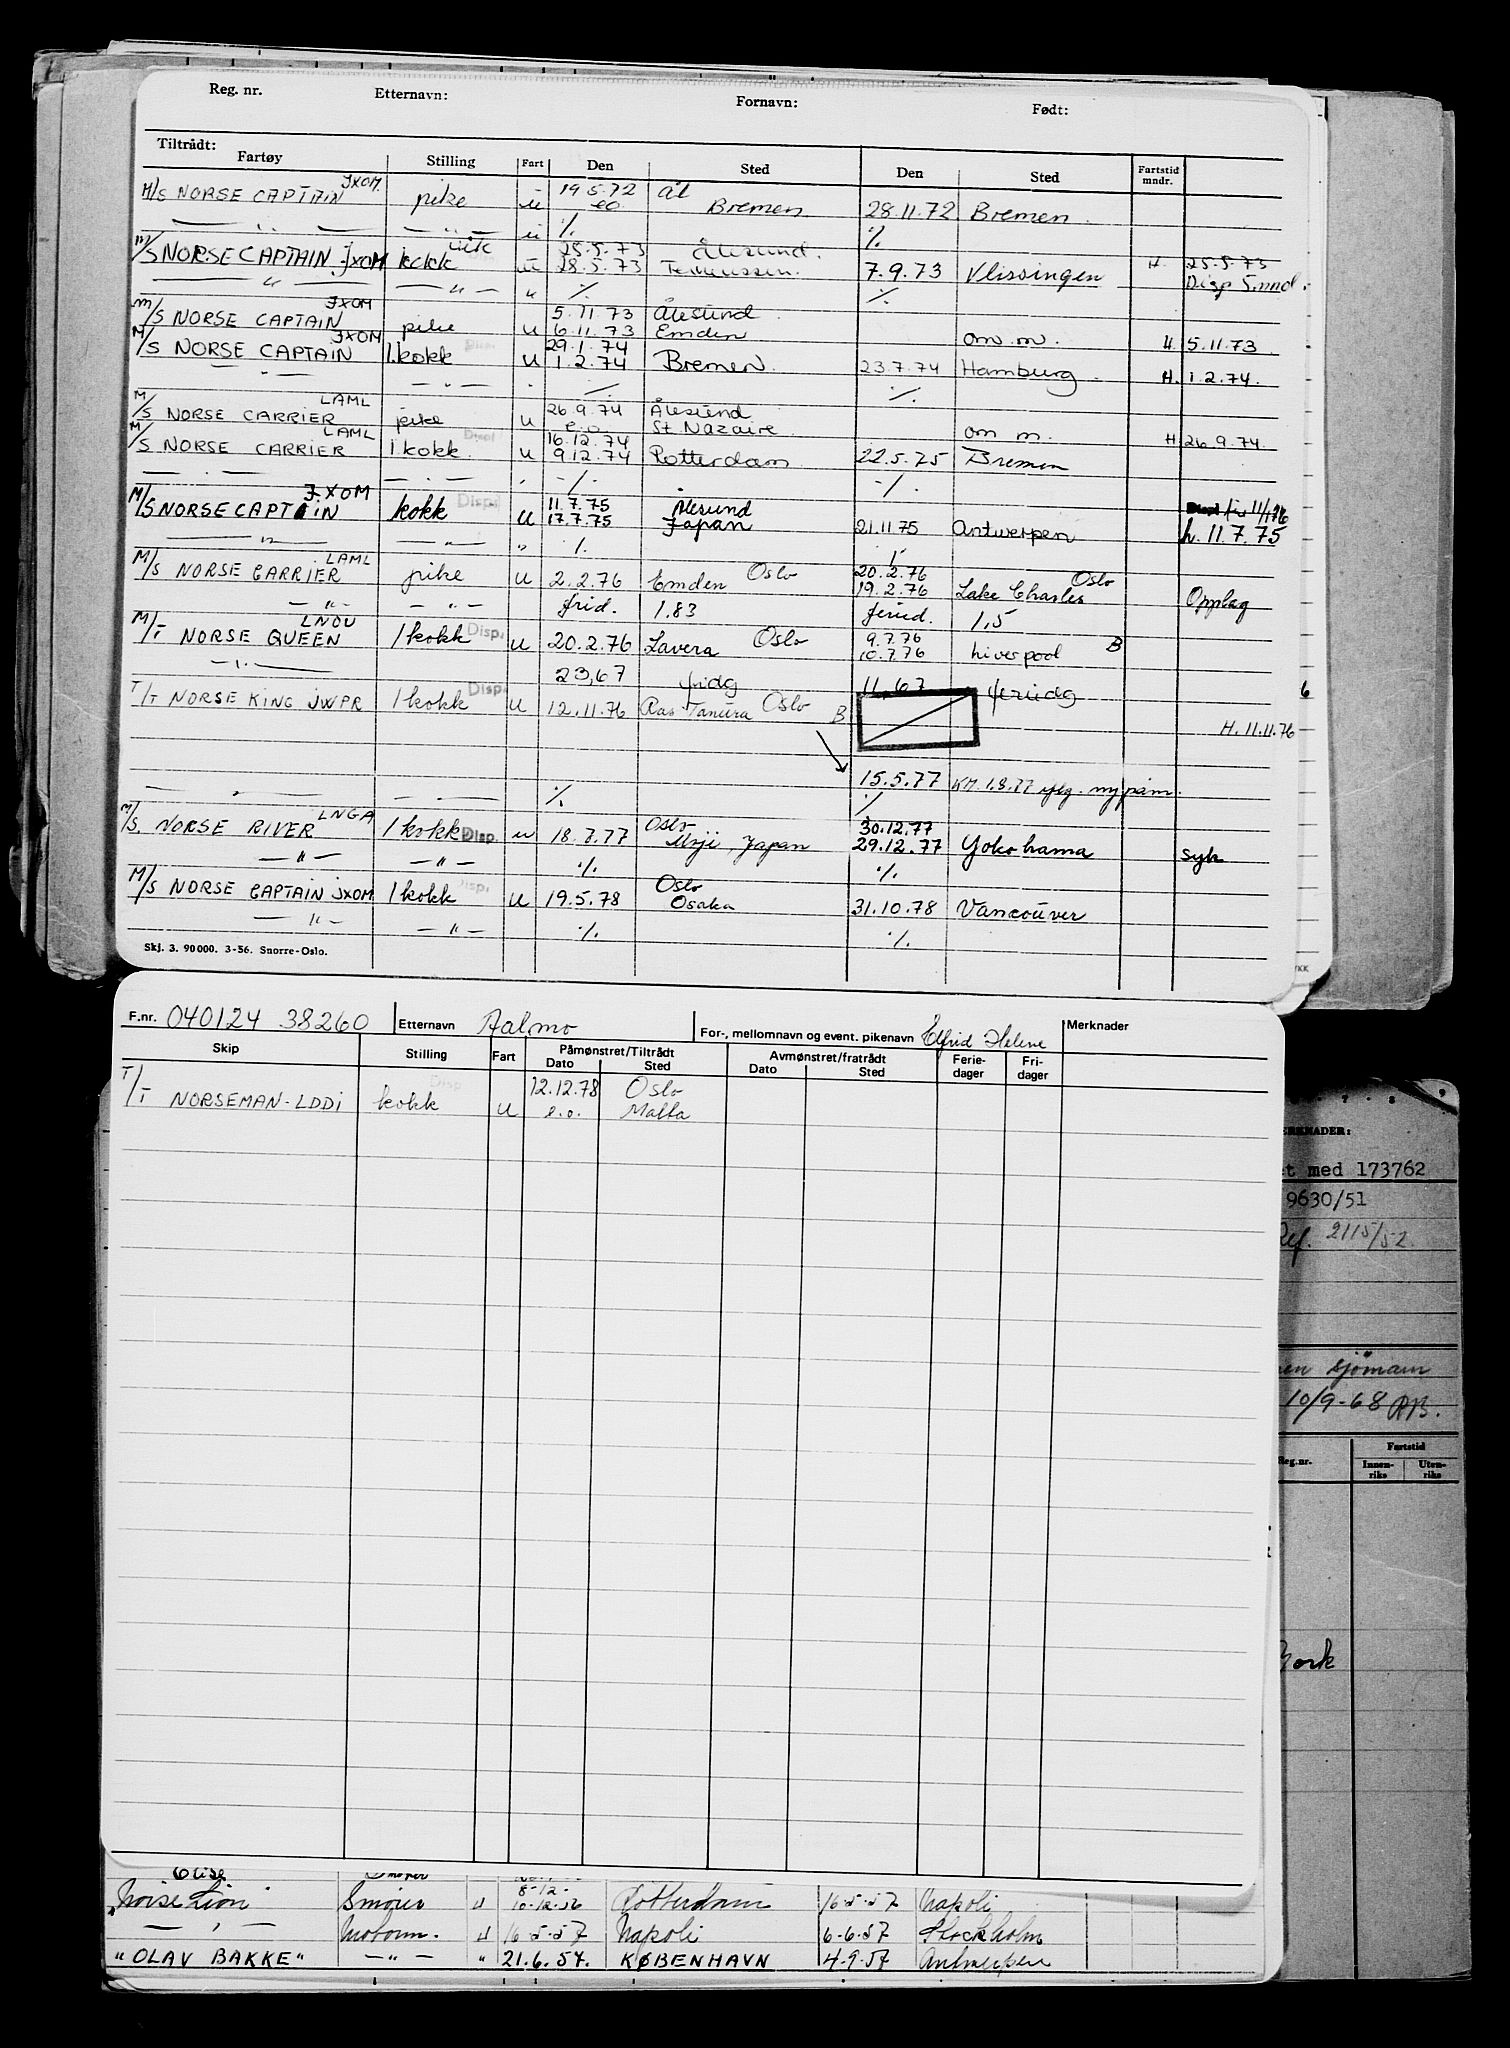 Reg. nr. Etternavn: Fornavn: Født:
Tiltrådt:
Fartøy Stilling Fart Den Sted Den Sted Fartstid mndr.
M/S NORSE CAPTAIN JXOM pike u 19.5.72 Ål
eo Bremen 28.11.72 Bremen
— " — — " — u % %
M/S NORSE CAPTAIN JXOM kokk u 25.5.73 Ålesund.
28.5.73 7.9.73 Vlissingen H. 25.5.73
— " — — " — " % % Disp 5.mnd.
M/S NORSE CAPTAIN JXOM pike u 5.11.73 Ålesund
6.11.73 Emden om.m. H. 5.11.73
M/S NORSE CAPTAIN JXOM 1.kokk Disp. u 29.1.74
1.2.74 Bremen. 23.7.74 Hamburg. H. 1.2.74.
— " — — " — % %
M/S NORSE CARRIER LAML pike u 26.9.74 Ålesund
e.o. St Nazaire om m. H 26.9.74.
M/S NORSE CARRIER LAML 1 kokk. Displ u 16.12.74
9.12.74 Rotterdam 22.5.75 Bremen
— . — — . — % %
M/S NORSE CAPTAIN JXOM kokk Displ u 11.7.75 Ålesund
17.7.75 Japan 21.11.75 Antwerpen h. 11.7.75
— " — — " — " % %
M/S NORSE CARRIER LAML pike u 2.2.76 Emden Oslo 20.2.76 Oslo
19.2.76 Lake Charles Opplag
— " — — " — frid. 1.83 feried. 1,5
M/T NORSE QUEEN LNOU 1 kokk Disp. u 20.2.76 Lavera Oslo 9.7.76
10.7.76 Liverpool B
— " — 23,67 fridg 11,67 feriedg 6
T/T NORSE KING JWPR 1 kokk Disp. u 12.11.76 Ras Tanura Oslo B
H. 11.11.76
15.5.77 KM 1.8.77 nypåm.
— " — — " — % %
M/S. NORSE RIVER LNGA 1 kokk Disp. u 18.7.77 Oslo 30.12.77
Moji, Japan 29.12.77 Yokohama syk
— " — — " — % %
M/S NORSE CAPTAIN JXOM 1 kokk Disp. u 19.5.78 Oslo
Osaka 31.10.78 Vancouver
— " — — " — % %
Skj. 3. 90000. 3-56. Snorre-Oslo.
F.nr. 040124 38260 Etternavn Aalmo For-, mellomnavn og event. pikenavn Elfrid Helene Merknader
Skip Stilling Fart Påmønstret/Tiltrådt Avmønstret/fratrådt Ferie-dager Fri-dager
Dato Sted Dato Sted
T/T NORSEMAN-LDDI kokk Disp u 12.12.78 Oslo
e.o. Malta
ERKNADER:
t med 173762
9630/51
Ref. 2115/52.
en sjømann
10/9-68 RB.
Reg.nr. Fartstid
Innen-riks Uten-riks
York
Norse Lion Smører u 8-12-
10-12-56 Rotterdam 16-5-57 Napoli
— " — Motorm. u 16-5-57 Napoli 6-6-57 Stockholm
"OLAV BAKKE" — " — " 21.6.57. KØBENHAVN 4-9-57 Antwerpen